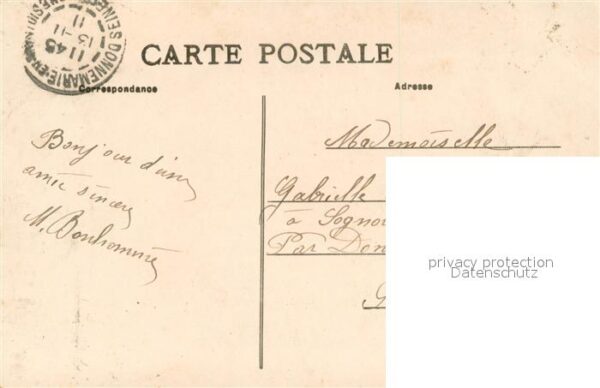 DONNEMARIE-EN-
11 45
13 -11
11
CARTE POSTALE
Correspondance
Adresse
Bonjour d'une
amie sincère
M. Bonhomme
Mademoiselle
Gabrielle
à Sognol
Par Don
privacy protection
Datenschutz